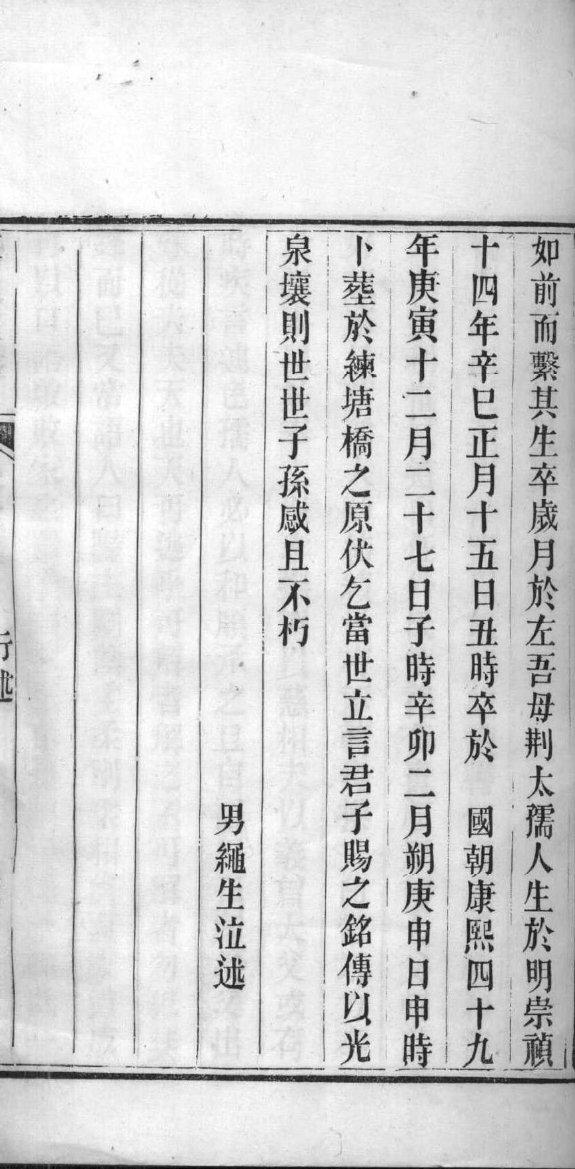 如前而繫其生卒歲月於左吾母荆太孺人生於明崇禎
十四年辛巳正月十五日丑時卒於　國朝康熙四十九
年庚寅十二月二十七日子時辛卯二月朔庚申日申時
卜塟於練塘橋之原伏乞當世立言君子賜之銘傳以光
泉壤則世世子孫感且不朽
男繩生泣述
行述